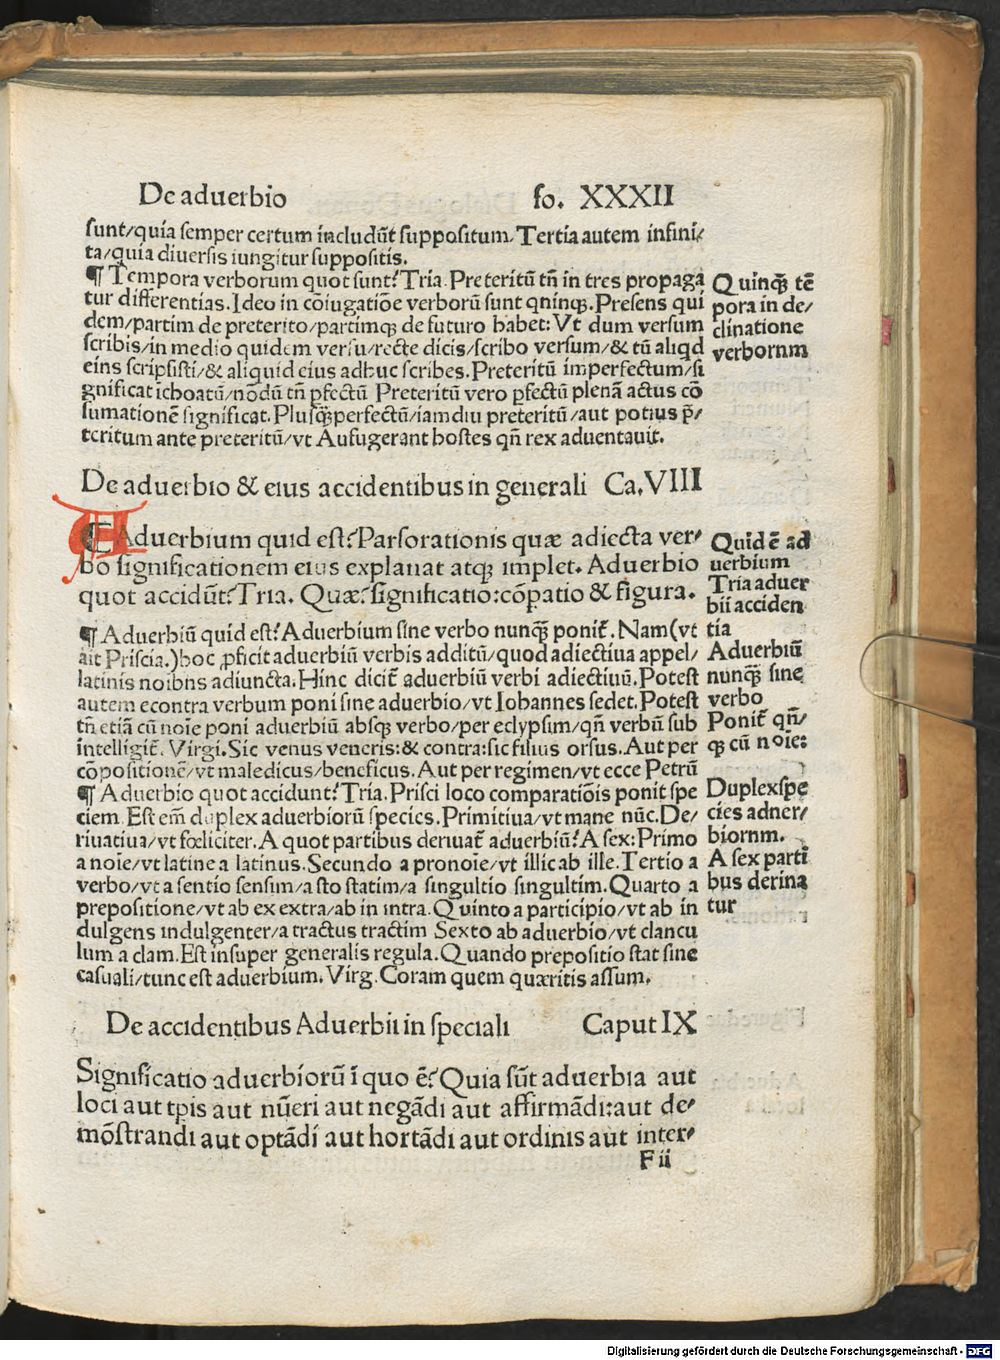 De aduerbio fo. XXXII
sunt/quia semper certum includũt suppositum. Tertia autem infini/
ta/quia diuersis iungitur suppositis.
¶ Tempora verborum quot sunt? Tria. Preteritũ tñ in tres propaga
tur differentias. Ideo in cõiugatiõe verborũ sunt qninqꝫ. Presens qui
dem/partim de preterito/partimqꝫ de futuro habet: Vt dum versum
scribis/in medio quidem versu/recte dicis/scribo versum/& tũ aliqd
eins scripsisti/& aliquid eius adhuc scribes. Preteritũ imperfectum/si
gnificat ichoatũ/nõdũ tñ ꝑfectũ Preteritũ vero ꝑfectũ plenã actus cõ
sumationẽ significat. Plusq̃perfectũ/iam diu preteritũ/aut potius p̃/
teritum ante preteritũ/vt Aufugerant hostes qñ rex aduentauit.
Quinqꝫ tẽ
pora in de/
clinatione
verbornm
De aduerbio & eius accidentibus in generali Ca. VIII
Aduerbium quid est? Pars orationis quæ adiecta ver/
bo significationem eius explanat atqꝫ implet. Aduerbio
quot accidũt? Tria. Quæ? significatio: cõpatio & figura.
¶ Aduerbiũ quid est? Aduerbium sine verbo nunq̃ ponit̃. Nam (vt
ait Priscia.) hoc ꝓficit aduerbiũ verbis additũ/quod adiectiua appel/
latinis noibns adiuncta. Hinc dicit̃ aduerbiũ verbi adiectiuũ. Potest
autem econtra verbum poni sine aduerbio/vt Iohannes sedet. Potest
tñ etiã cũ noĩe poni aduerbiũ absqꝫ verbo/per eclypsim/qñ verbũ sub
intelligit̃. Virgi. Sic venus veneris: & contra: sic filius orsus. Aut per
cõpositionẽ/vt maledicus/beneficus. Aut per regimen/vt ecce Petrũ
¶ Aduerbio quot accidunt? Tria. Prisci loco comparatiõis ponit spe
ciem. Est em̃ duplex aduerbiorũ species. Primitiua/vt mane nũc. De/
riuatiua/vt fœliciter. A quot partibus deriuat̃ aduerbiũ? A sex: Primo
a noĩe/vt latine a latinus. Secundo a pronoĩe/vt illic ab ille. Tertio a
verbo/vt a sentio sensim/a sto statim/a singultio singultim. Quarto a
prepositione/vt ab ex extra/ab in intra. Quinto a participio/vt ab in
dulgens indulgenter/a tractus tractim Sexto ab aduerbio/vt clancu
lum a clam. Est insuper generalis regula. Quando prepositio stat sine
casuali/tunc est aduerbium. Virg. Coram quem quæritis assum.
Quid ẽ ad
uerbium
Tria aduer
bii acciden
tia
Aduerbiũ
nunq̃ sine
verbo
Ponit̃ qñ/
qꝫ cũ noĩe:
Duplex spe
cies adner/
biornm.
A sex parti
bus derina
tur
De accidentibus Aduerbii in speciali Caput IX
Significatio aduerbiorũ ĩ quo ẽ? Quia sũt aduerbia aut
loci aut tp̃is aut nũeri aut negãdi aut affirmãdi: aut de/
mõstrandi aut optãdi aut hortãdi aut ordinis aut inter/
F ii
Digitalisierung gefördert durch die Deutsche Forschungsgemeinschaft - DFG